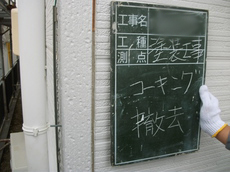 工事名
工種
測点 塗装工事
コーキング
撤去